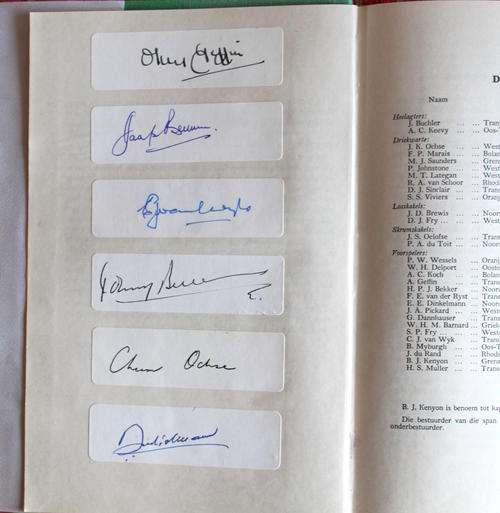 Okey Geffin
Jaap Bekker
Johnny Buchler
Chum Ochse
D
Naam
Heelagters:
J. Buchler ... ... Tran
A. C. Keevy ... ... Oos-
Driekwarte:
J. K. Ochse ... West
F. P. Marais ... Bolan
M. J. Saunders ... Gren
P. Johnstone ... West
M. T. Lategan ... West
R. A. van Schoor ... Rhod
D. J. Sinclair ... Trans
S. S. Viviers ... Oranj
Losskakels:
J. D. Brewis ... Noor
D. J. Fry ... ... West
Skrumskakels:
J. S. Oelofse ... Trans
P. A. du Toit ... Noor
Voorspelers:
P. W. Wessels ... Oranj
W. H. Delport ... Oosto
A. C. Koch ... Bolan
A. Geffin ... Trans
H. P. J. Bekker ... Noor
F. E. van der Ryst ... Trans
E. E. Dinkelmann ... Noor
J. A. Pickard ... West
G. Dannhauser ... Trans
W. H. M. Barnard ... Griek
S. P. Fry ... ... West
C. J. van Wyk ... Trans
B. Myburgh ... Oos-T
J. du Rand ... Rhod
B. J. Kenyon ... Grens
H. S. Muller ... Trans
B. J. Kenyon is benoem tot kap
Die bestuurder van die span
onderbestuurder.